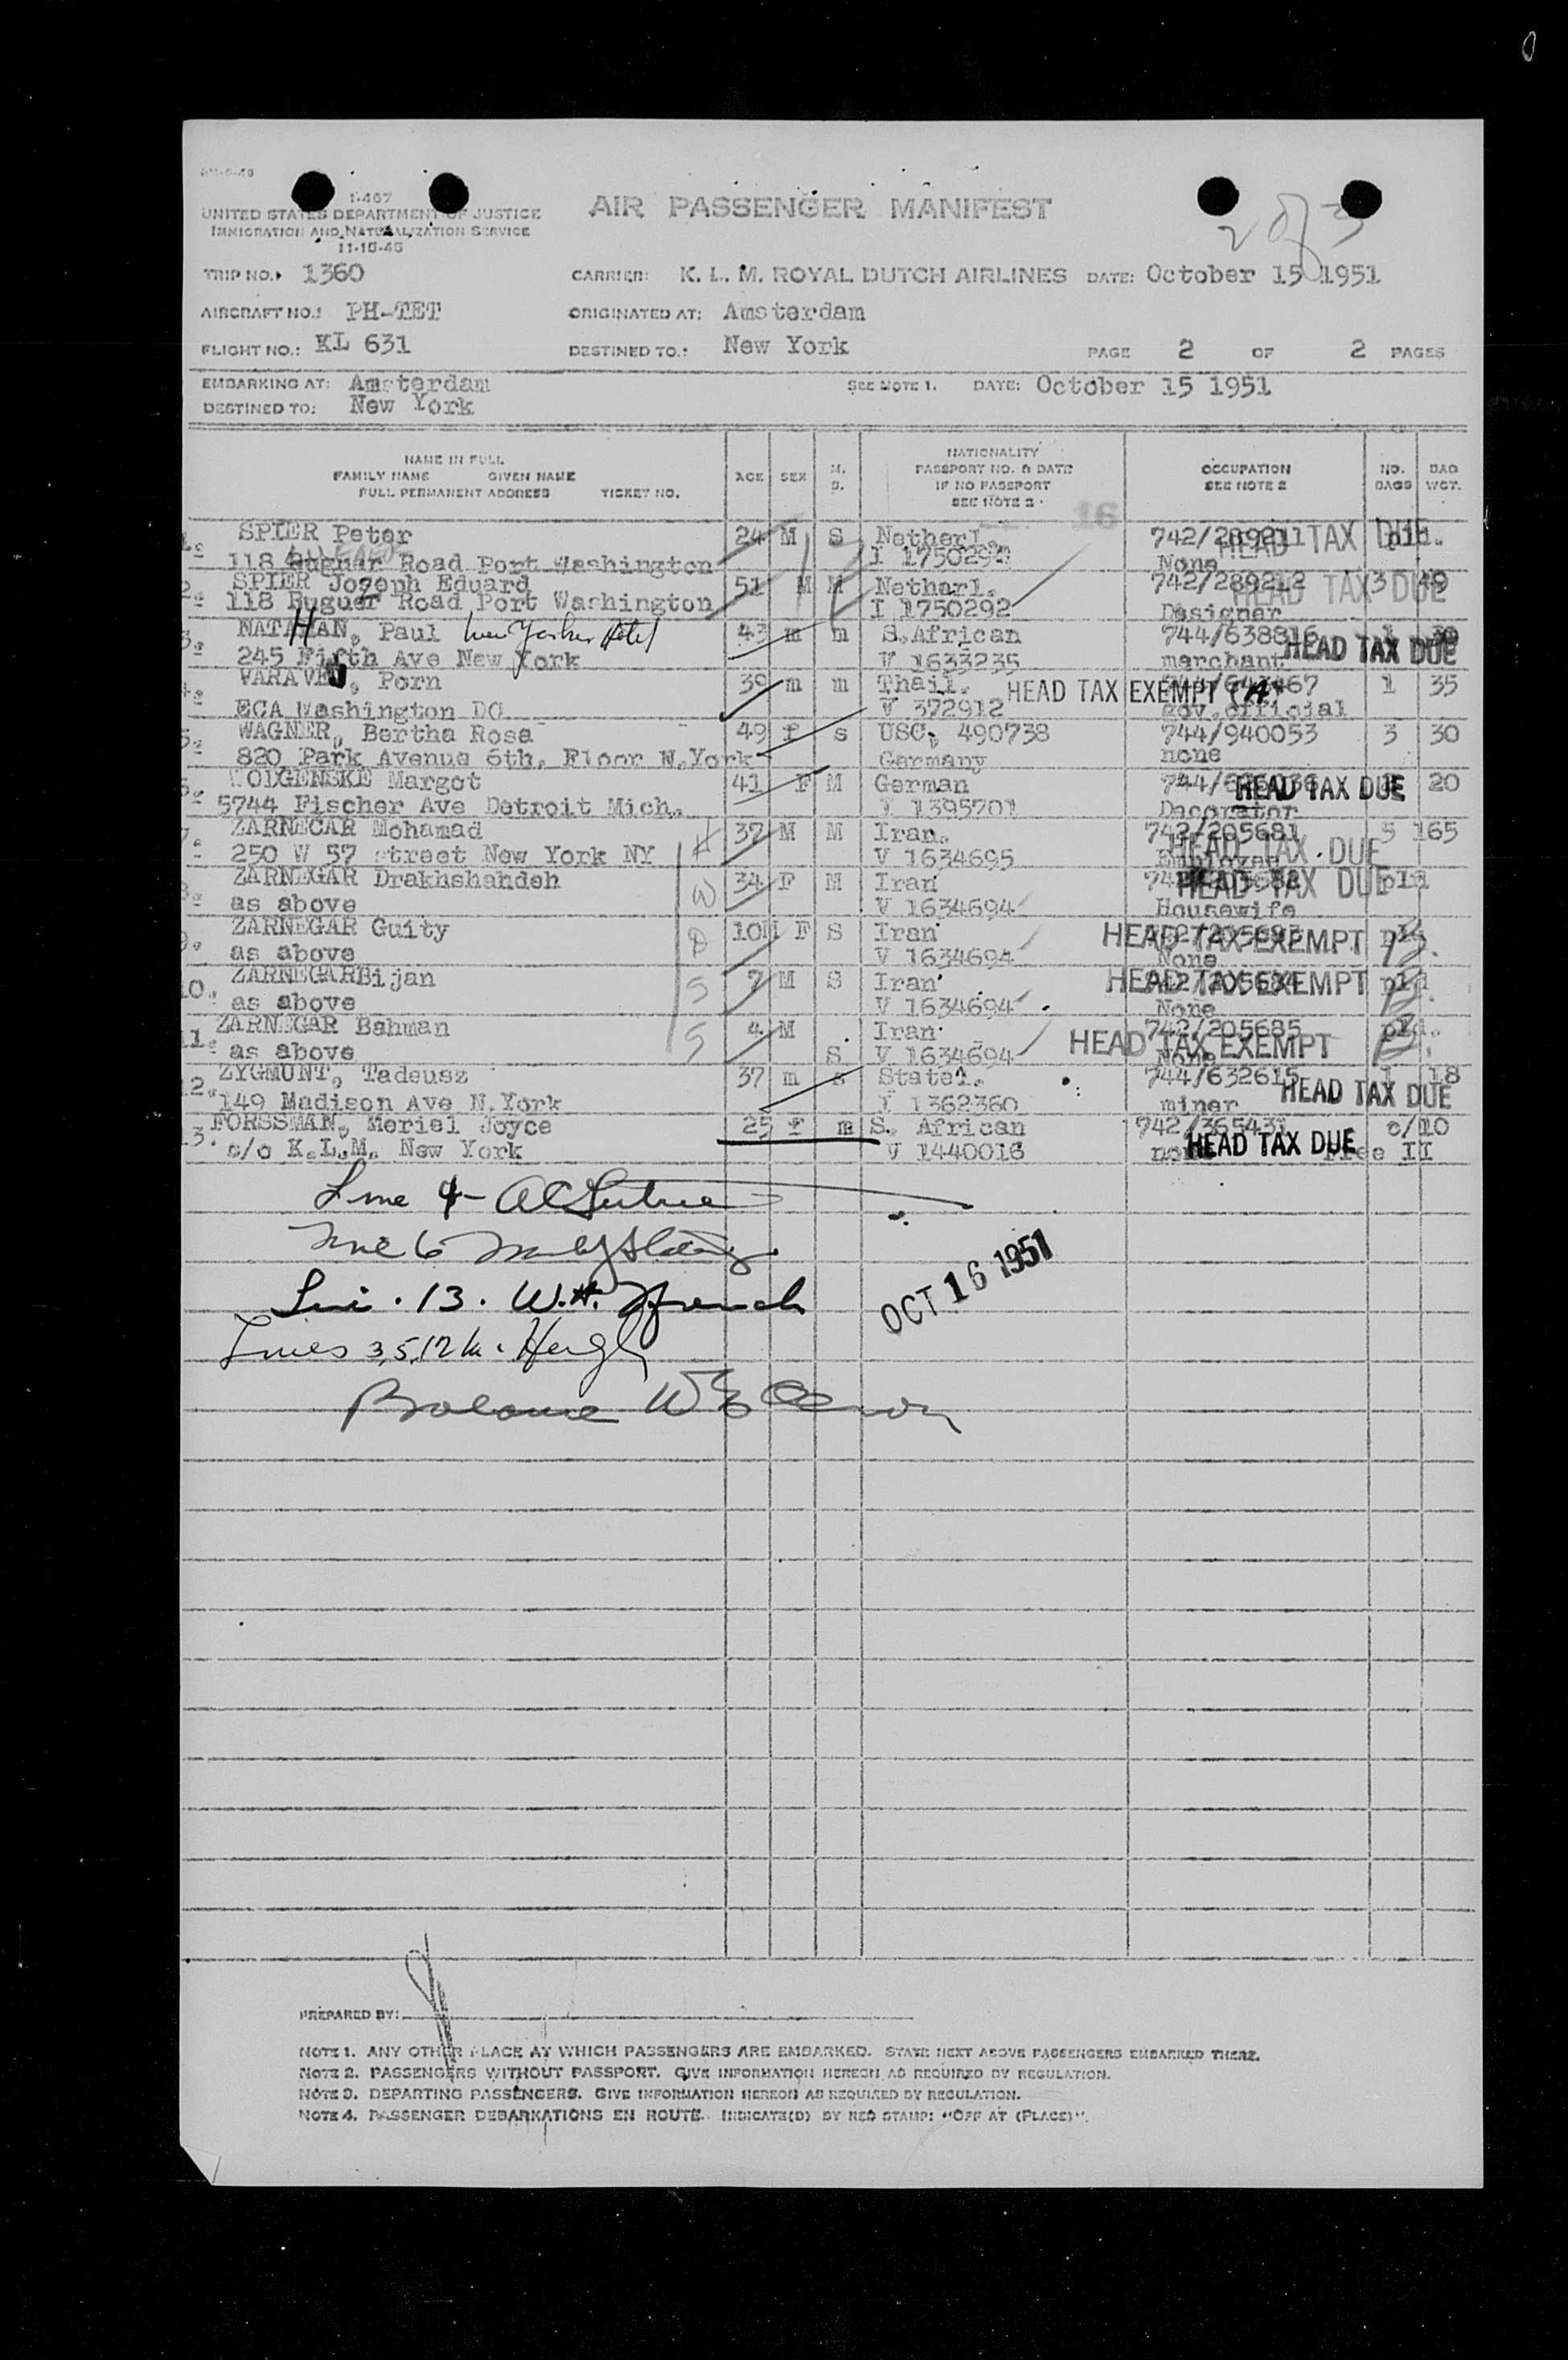 I-407
UNITED STATES DEPARTMENT OF JUSTICE
IMMIGRATION AND NATURALIZATION SERVICE
11-15-45
AIR PASSENGER MANIFEST
2 of 3
TRIP NO. 1360 CARRIER: K. L. M. ROYAL DUTCH AIRLINES DATE: October 15 1951
AIRCRAFT NO.: PH-TET ORIGINATED AT: Amsterdam
FLIGHT NO.: KL 631 DESTINED TO.: New York PAGE 2 OF 2 PAGES
EMBARKING AT: Amsterdam SEE NOTE 1. DATE: October 15 1951
DESTINED TO: New York
NAME IN FULL
FAMILY NAME GIVEN NAME
FULL PERMANENT ADDRESS TICKET NO.
AGE SEX M. S.
NATIONALITY
PASSPORT NO. & DATE
IF NO PASSPORT
SEE NOTE 2
OCCUPATION
SEE NOTE 2
NO. BAGS BAG WGT.
16
SPIER Peter 24 M S Netherl. 742/289211 HEAD TAX DUE
118 Road Port Washington I None
2. SPIER Joseph Eduard 51 M M Netherl. 742/289212 3 49 HEAD TAX DUE
118 Road Port Washington I 1750292 Designer
3. NATHAN, Paul New Yorker Hotel 43 m m S.African 744/638816 1 HEAD TAX DUE
245 Fifth Ave New York V 1633235 merchant
4. VARAVEJ, Porn 39 m m Thail. HEAD TAX EXEMPT 1 35
ECA Washington DC V 372912 gov.official
5. WAGNER, Bertha Rosa 49 f s USC, 490738 744/940053 3 30
820 Park Avenue 6th. Floor N.York Germany none
6. WOIGENSKE Margot 41 F M German HEAD TAX DUE 20
5744 Fischer Ave Detroit Mich. I 1395701 Decorator
7. ZARNEGAR Mohamad H 37 M M Iran. 742/205681 5 165
250 W 57 street New York NY V 1634695 Employee HEAD TAX DUE
8. ZARNEGAR Drakhshandeh W 34 F M Iran HEAD TAX DUE
as above V 1634694 Housewife
9. ZARNEGAR Guity D 10 F S Iran HEAD TAX EXEMPT
as above V 1634694 None
10. ZARNEGAR Bijan S 7 M S Iran HEAD TAX EXEMPT
as above V 1634694 None
11. ZARNEGAR Bahman S 4 M S Iran 742/205685 pld.
as above V 1634694 None HEAD TAX EXEMPT
12. ZYGMUNT, Tadeusz 37 m s Statel. 744/632615 1 18
149 Madison Ave N.York I 1362360 miner HEAD TAX DUE
13. FORSSMAN, Meriel Joyce 25 f m S. African 742/365431 c/10
c/o K.L.M. New York V 1440016 none HEAD TAX DUE free II
Line 4-
Line 6
Line . 13 . W.H. French
OCT 16 1951
Lines 3,5,12
Balance
PREPARED BY:
NOTE 1. ANY OTHER PLACE AT WHICH PASSENGERS ARE EMBARKED. STATE NEXT ABOVE PASSENGERS EMBARKED THERE.
NOTE 2. PASSENGERS WITHOUT PASSPORT. GIVE INFORMATION HEREON AS REQUIRED BY REGULATION.
NOTE 3. DEPARTING PASSENGERS. GIVE INFORMATION HEREON AS REQUIRED BY REGULATION.
NOTE 4. PASSENGER DEBARKATIONS EN ROUTE. INDICATE(D) BY RED STAMP: "OFF AT (PLACE)".